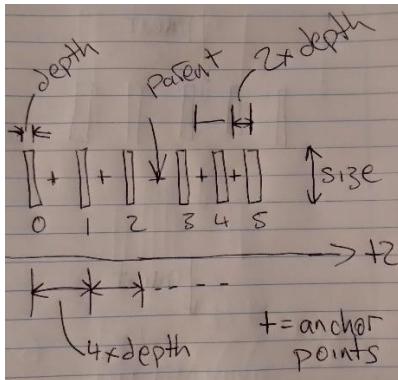 depth
parent
2x depth
+ + + + +
size
0 1 2 3 4 5
+z
4xdepth
+ = anchor
points